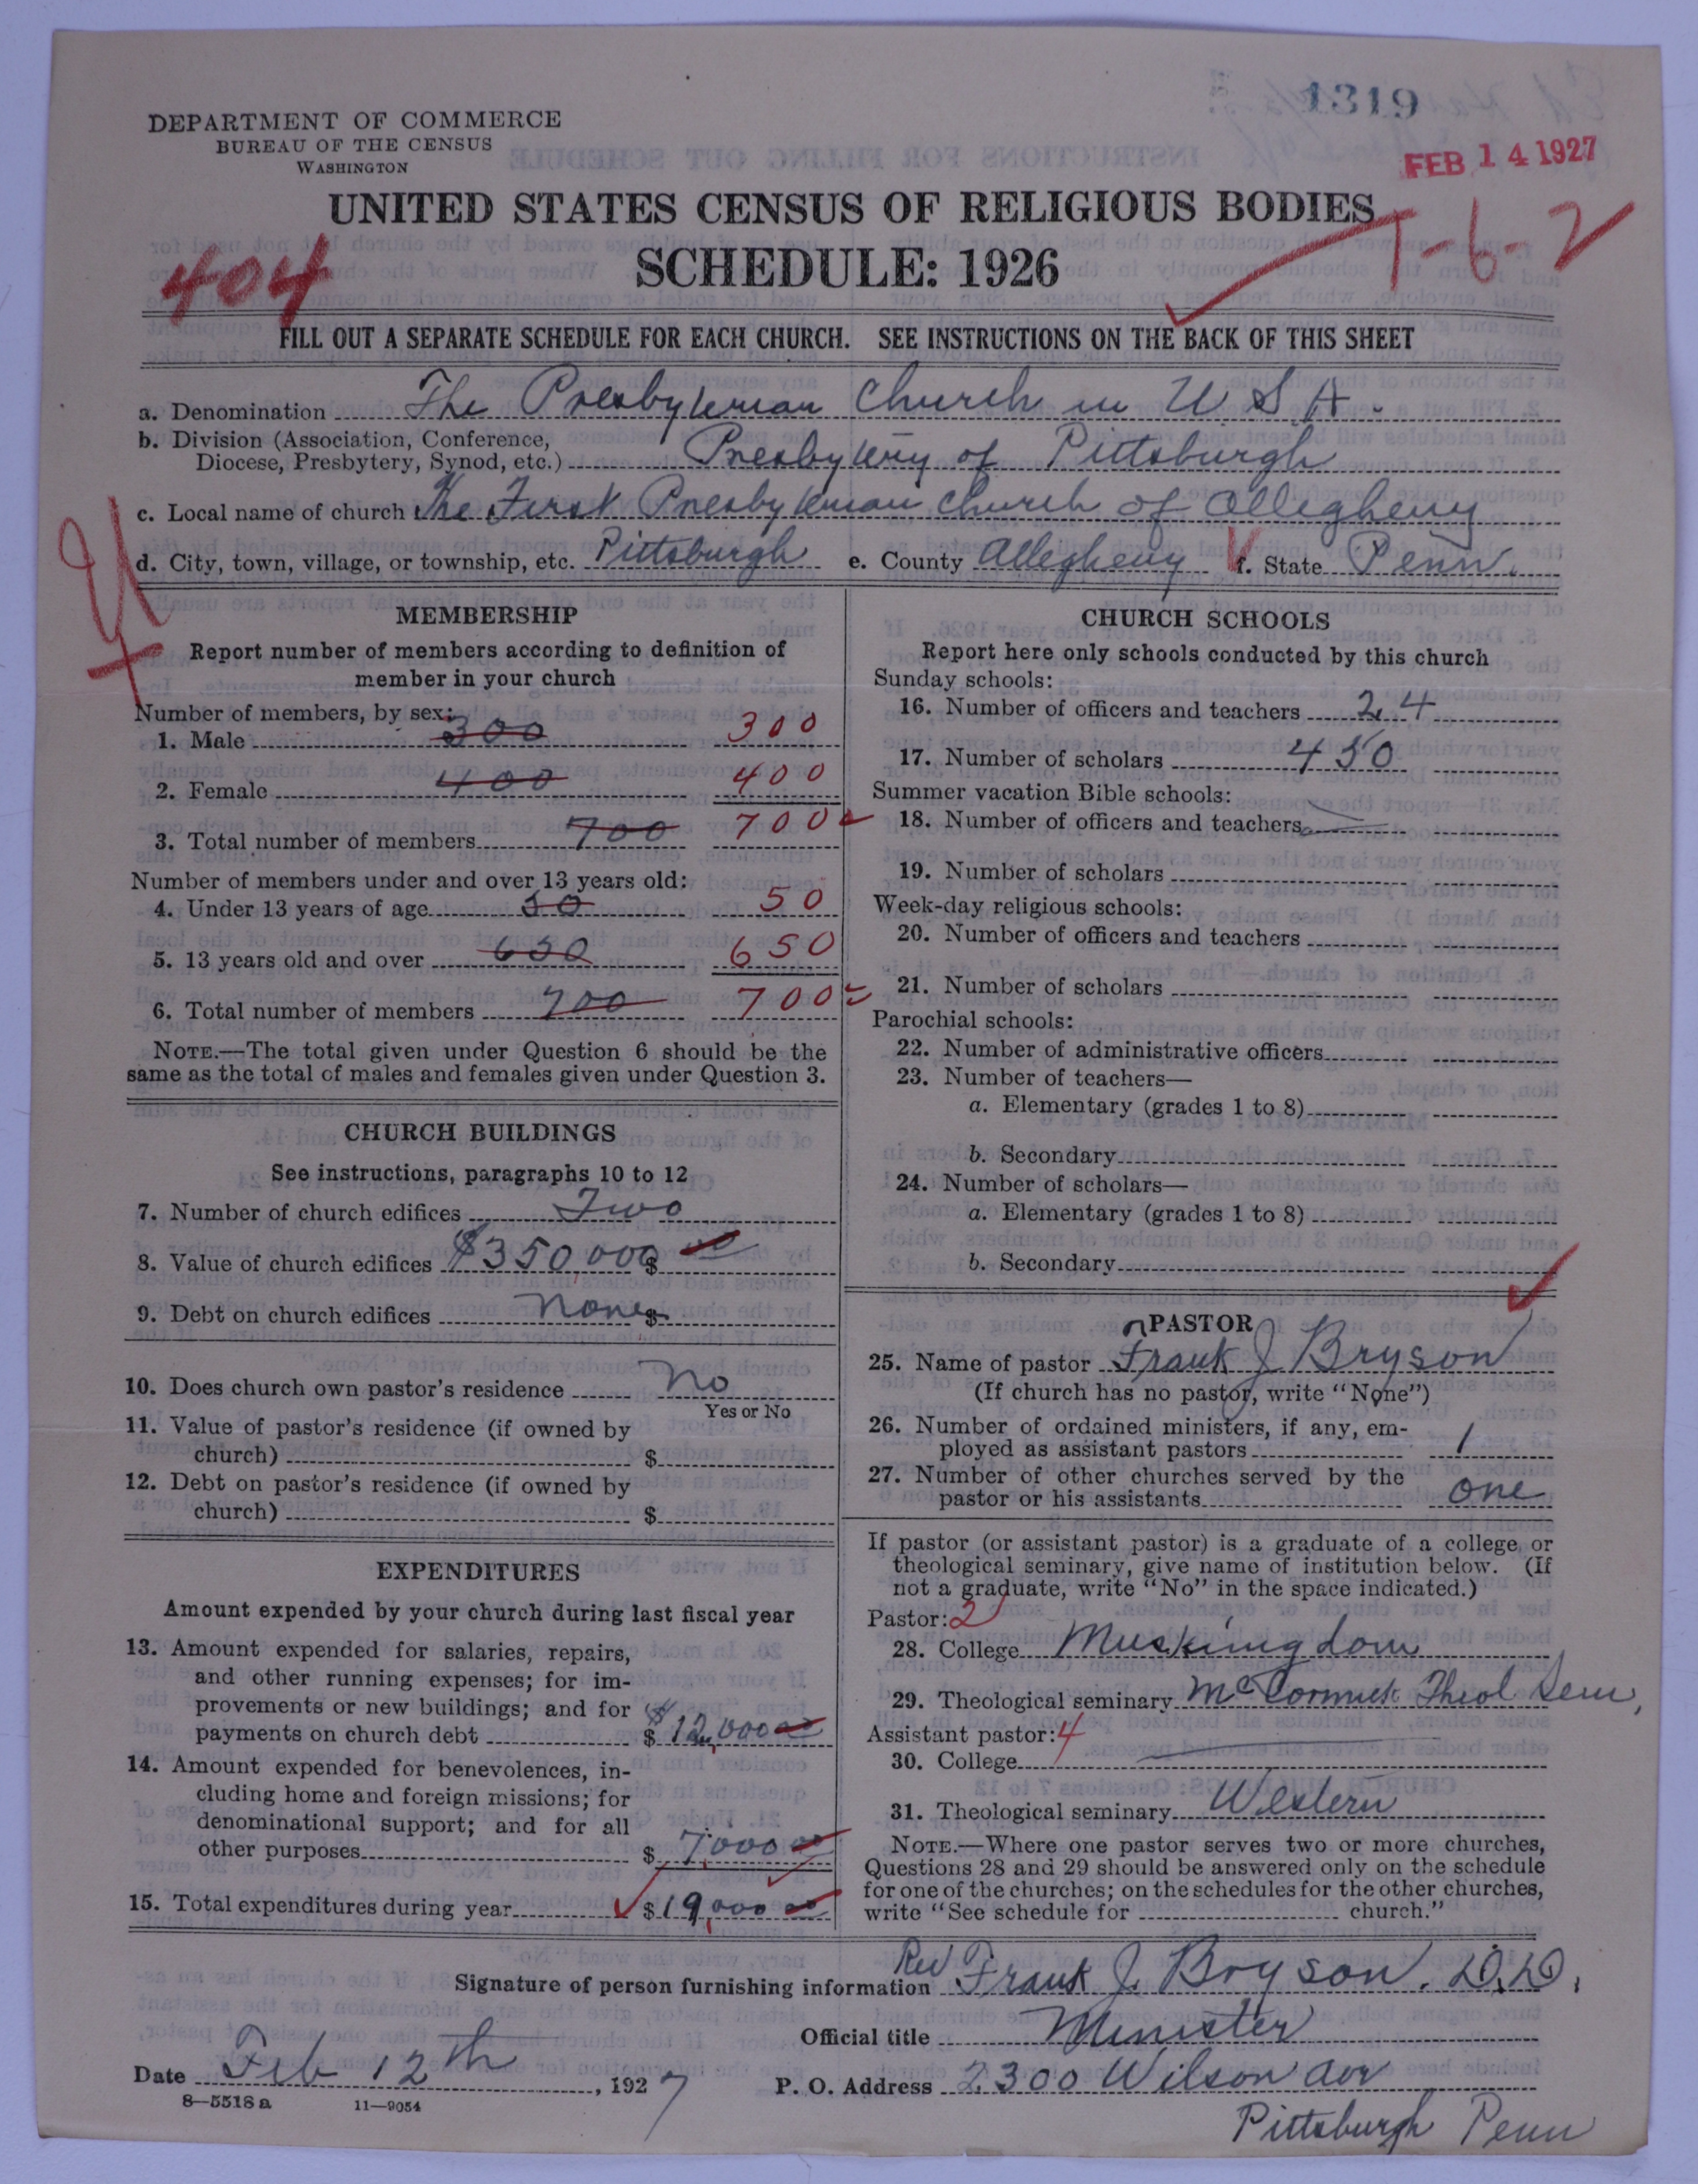 1319
DEPARTMENT OF COMMERCE
BUREAU OF THE CENSUS
WASHINGTON
FEB 14 1927
UNITED STATES CENSUS OF RELIGIOUS BODIES
SCHEDULE: 1926
404
T-6-2
FILL OUT A SEPARATE SCHEDULE FOR EACH CHURCH. SEE INSTRUCTIONS ON THE BACK OF THIS SHEET
a. Denomination The Presbyterian Church in U S A.
b. Division (Association, Conference,
Diocese, Presbytery, Synod, etc.) Presbytery of Pittsburgh
c. Local name of church The First Presbyterian Church of Allegheny
d. City, town, village, or township, etc. Pittsburgh e. County Allegheny f. State Penn.
MEMBERSHIP
Report number of members according to definition of
member in your church
Number of members, by sex:
1. Male 300 300
2. Female 400 400
3. Total number of members 700 700
Number of members under and over 13 years old:
4. Under 13 years of age 50 50
5. 13 years old and over 650 650
6. Total number of members 700 700
NOTE.—The total given under Question 6 should be the
same as the total of males and females given under Question 3.
CHURCH BUILDINGS
See instructions, paragraphs 10 to 12
7. Number of church edifices Two
8. Value of church edifices $350,000 $ 00
9. Debt on church edifices None $
10. Does church own pastor's residence No
Yes or No
11. Value of pastor's residence (if owned by
church) $
12. Debt on pastor's residence (if owned by
church) $
EXPENDITURES
Amount expended by your church during last fiscal year
13. Amount expended for salaries, repairs,
and other running expenses; for im-
provements or new buildings; and for
payments on church debt $ $12,000 00
14. Amount expended for benevolences, in-
cluding home and foreign missions; for
denominational support; and for all
other purposes $ 7,000 00
15. Total expenditures during year $19,000 00
CHURCH SCHOOLS
Report here only schools conducted by this church
Sunday schools:
16. Number of officers and teachers 24
17. Number of scholars 450
Summer vacation Bible schools:
18. Number of officers and teachers
19. Number of scholars
Week-day religious schools:
20. Number of officers and teachers
21. Number of scholars
Parochial schools:
22. Number of administrative officers
23. Number of teachers—
a. Elementary (grades 1 to 8)
b. Secondary
24. Number of scholars—
a. Elementary (grades 1 to 8)
b. Secondary
PASTOR
25. Name of pastor Frank J Bryson
(If church has no pastor, write "None")
26. Number of ordained ministers, if any, em-
ployed as assistant pastors 1
27. Number of other churches served by the
pastor or his assistants one
If pastor (or assistant pastor) is a graduate of a college or
theological seminary, give name of institution below. (If
not a graduate, write "No" in the space indicated.)
Pastor: 2
28. College Muskingdom
29. Theological seminary McCormick Theol Sem,
Assistant pastor: 4
30. College
31. Theological seminary Western
NOTE.—Where one pastor serves two or more churches,
Questions 28 and 29 should be answered only on the schedule
for one of the churches; on the schedules for the other churches,
write "See schedule for church."
Signature of person furnishing information Rev Frank J. Bryson. D.D.
Official title Minister
Date Feb 12th, 1927
P. O. Address 2300 Wilson Ave
Pittsburgh Penn
8—5518 a 11—9054